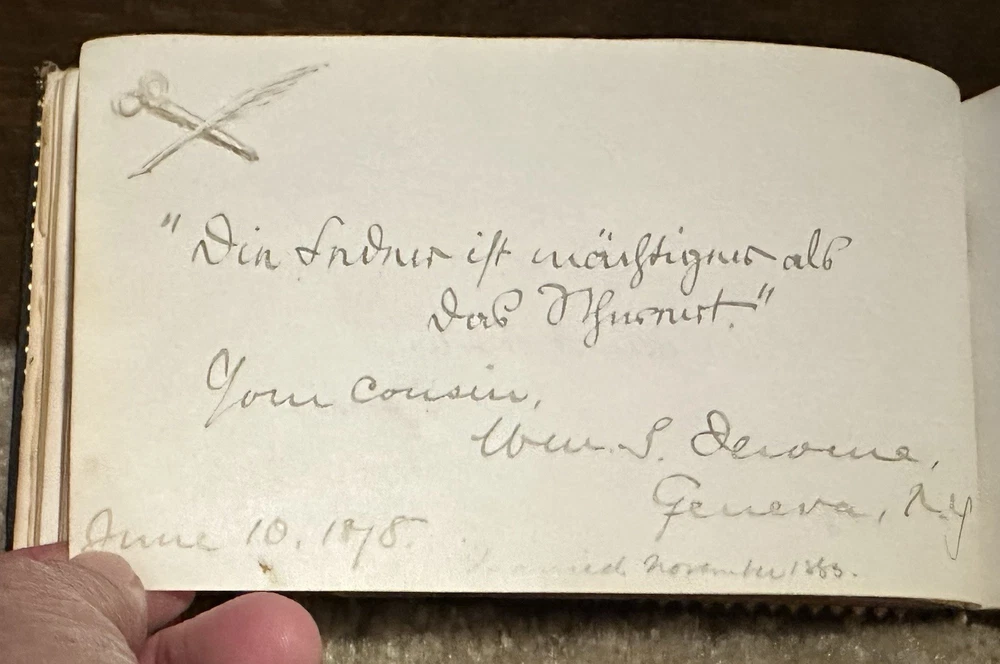 "Die Feder ist mächtiger als
das Schwert."
Your cousin,
Wm. S. Jerome,
Geneva, N.Y
June 10, 1878.
married November 1883.